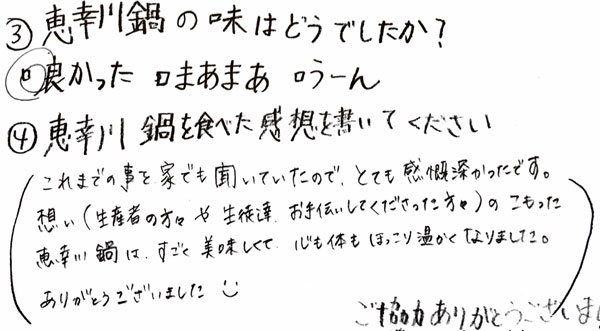 ③恵幸川鍋の味はどうでしたか？
□良かった □まあまあ □うーん
④恵幸川鍋を食べた感想を書いてください
これまでの事を家でも聞いていたので、とても感慨深かったです。
想い(生産者の方々や生徒達、お手伝いしてくださった方々)のこもった
恵幸川鍋は、すごく美味しくて、心も体もほっこり温かくなりました。
ありがとうございました
ご協力ありがとうございま